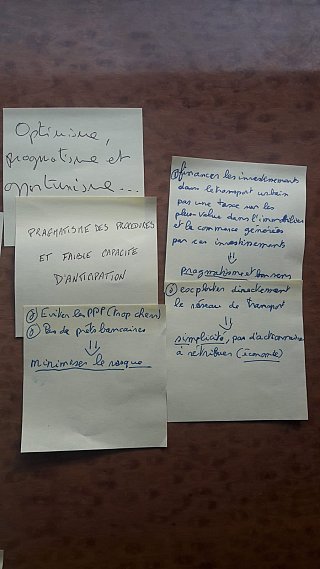 Optimisme,
pragmatisme et
opportunisme...
PRAGMATISME DES PROCEDURES
ET FAIBLE CAPACITE
D'ANTICIPATION
① Eviter les PPP (trop chers)
② Pas de prêts bancaires
⇓
minimiser le risque
① financer les investissements
dans le transport urbain
par une taxe sur les
plus-value dans l'immobilier
et le commerce générées
par ces investissements
⇓
pragmatisme et bon sens
② exploiter directement
le réseau de transport
⇓
simplicité, pas d'actionnaires
à rétribuer (économie)